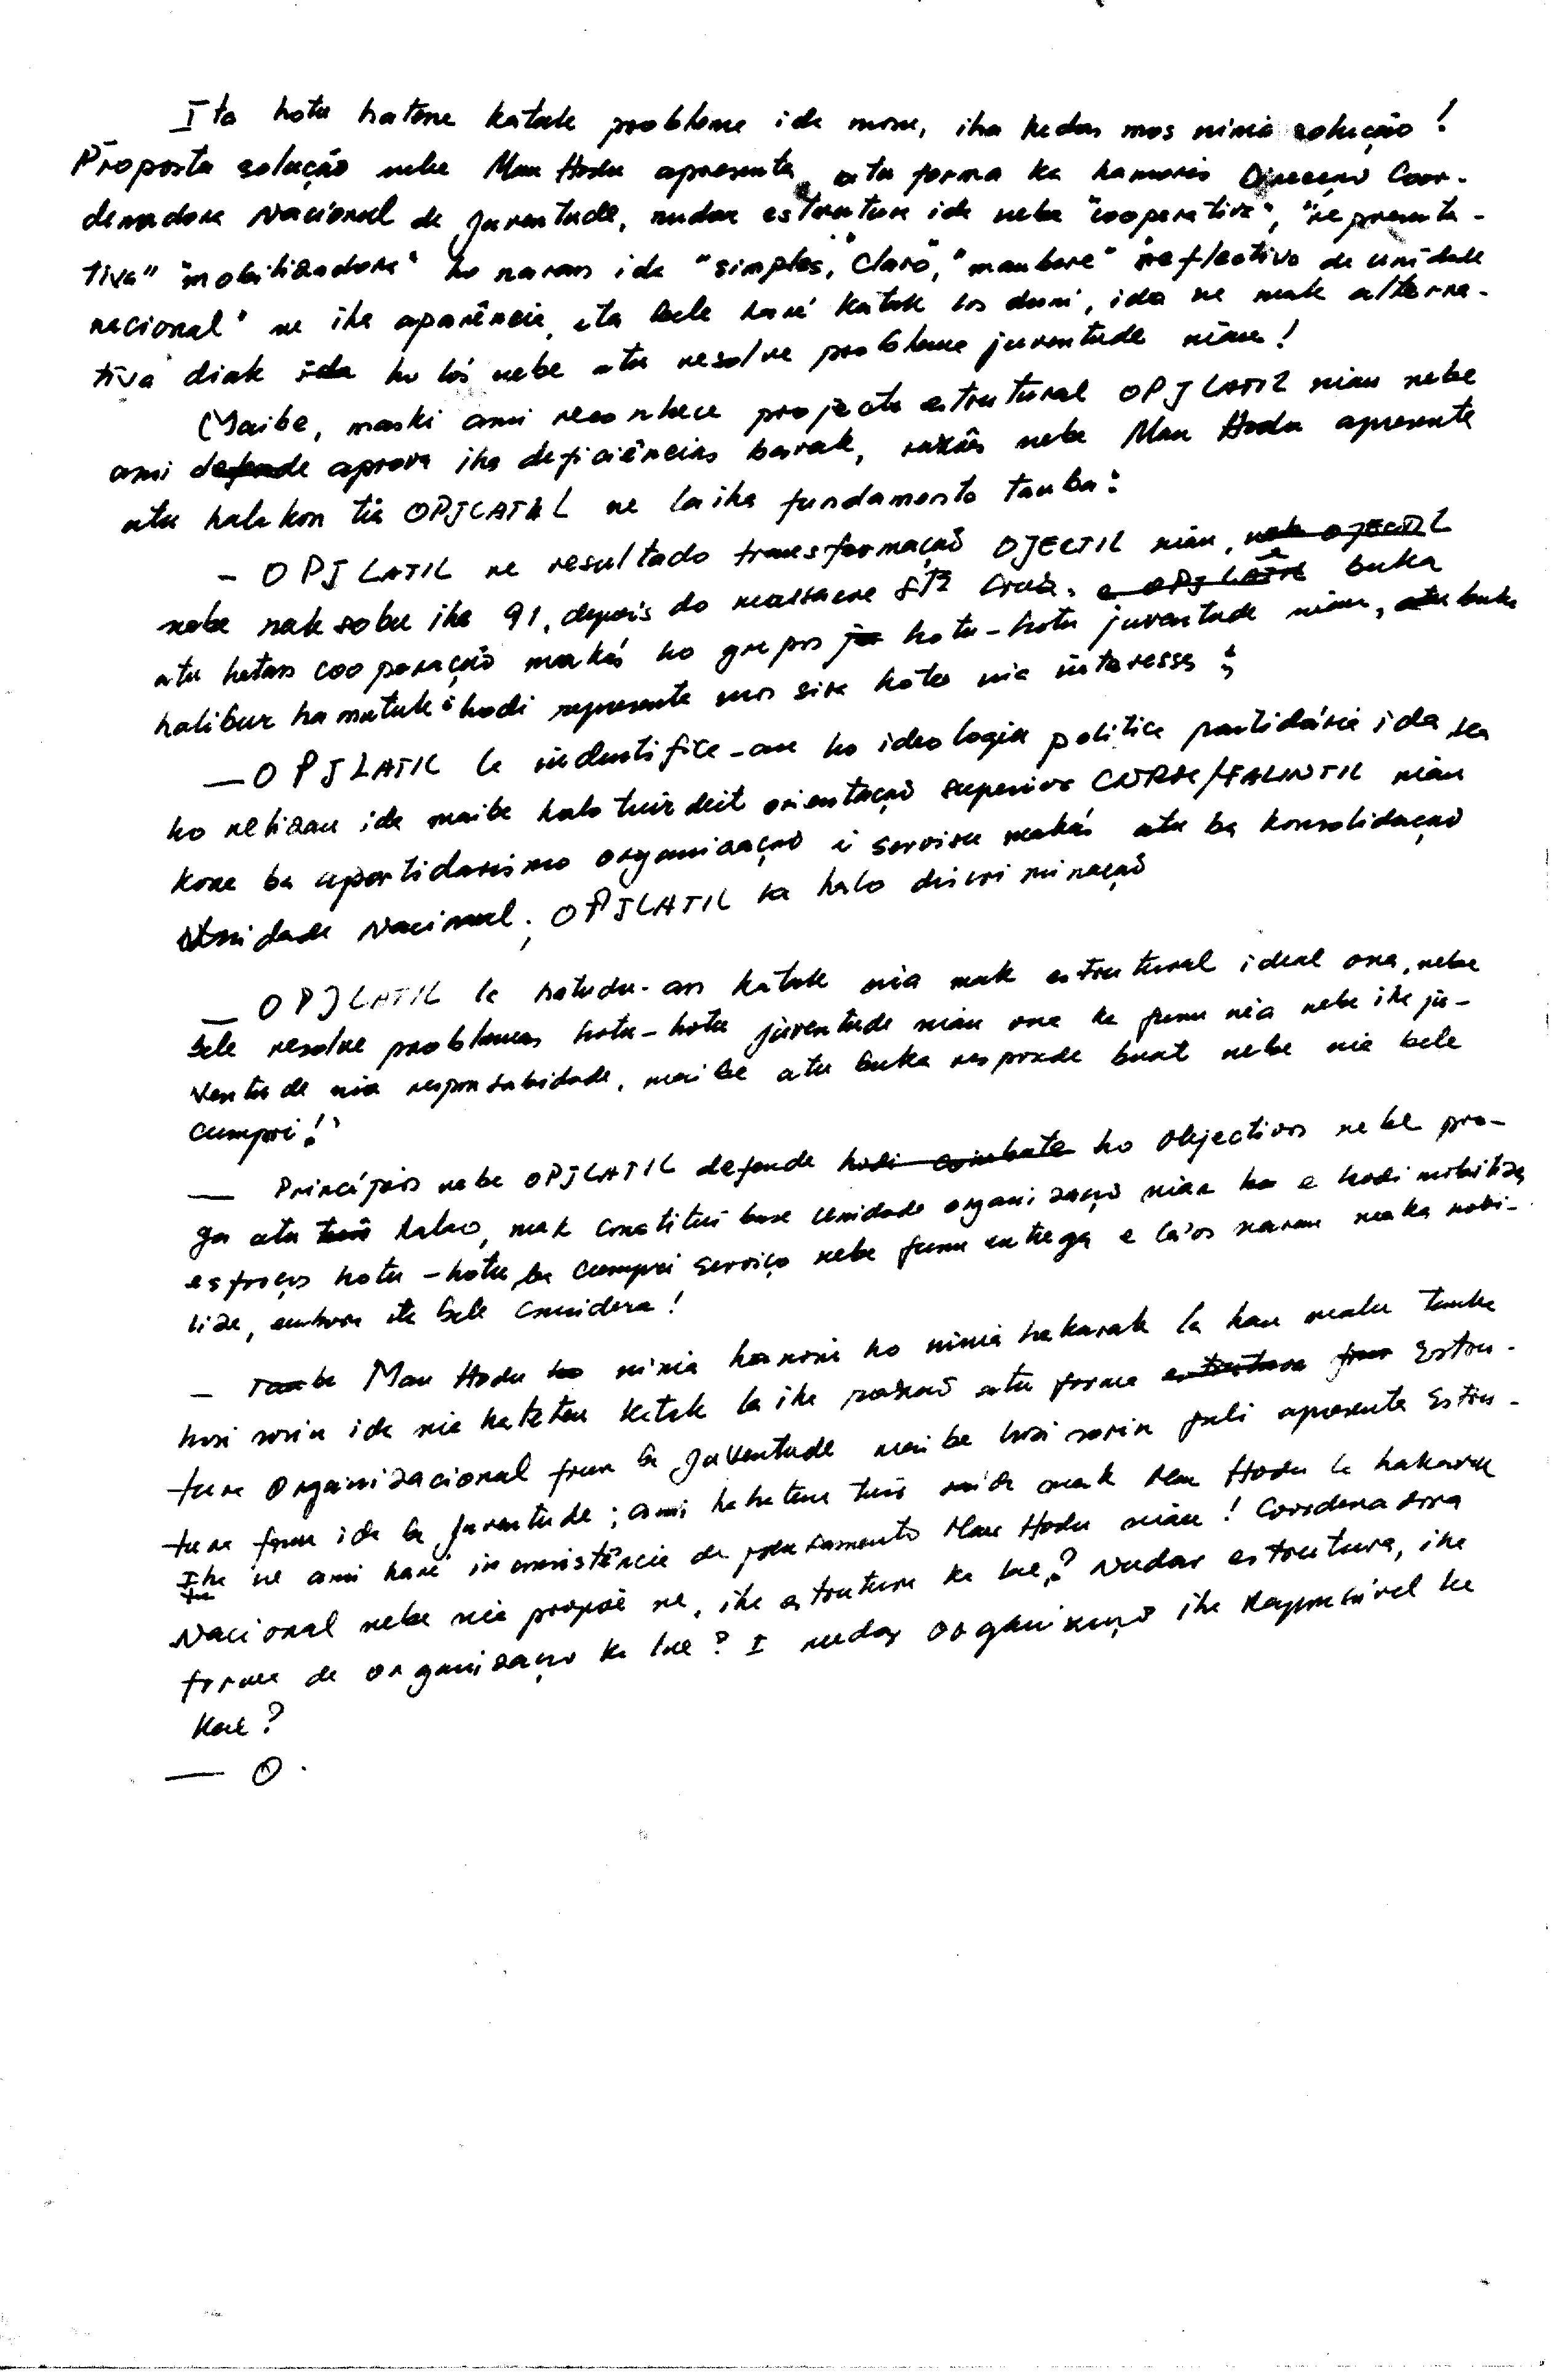 Ita hotu hatene katak problema ida mosu, iha kedas mos ninia solução!
Proposta solução nebe Mau Hodu apresenta, atu forma ka hamoris Direcção Coor-
denadora Nacional de Juventude, nudar estrutura ida nebe "cooperativa", "representa-
tiva" "mobilizadora" ho naran ida "simples," "claro," "maubere" "reflectivo da unidade
nacional" ne iha aparência, ita bele haré katak los duni, ida ne mak alterna-
tiva diak ida ho lós nebe atu resolve problema juventude nian!
Maibe, maski ami reconhece projecto estrutural OPJLATIL nian nebe
ami defende aprova iha deficiências barak, razões nebe Mau Hodu apresenta
atu halakon tia OPJLATIL ne laiha fundamento tanba:
- OPJLATIL ne resultado transformação OJECTIL nian, nebe OJECTIL
nebe naksobu iha 91, depois do massacre Stª Cruz. e OPJLATIL buka
atu hetan cooperação makás ho grupos ju hotu-hotu juventude nian, atu buka
halibur hamutuk hodi representa mos sira hotu nia interesses;
— OPJLATIL la indentifica-an ho ideologia politica partidária ida, ka
ho relizau ida maibe halo tuir deit orientação superior CNRM/FALINTIL nian
kona ba apartidarismo organização i servisu makás atu ba konsolidação
Unidade Nacional; OPJLATIL la halo discriminação
— OPJLATIL la hatudu-an katak nia mak estrutural ideal ona, nebe
bele resolve problemas hotu-hotu juventude nian ona ka funu nia nebe iha ju-
ventude nia responsabidade, maibe atu buka responde buat nebe nia bele
cumpri!
— Princípios nebe OPJLATIL defende hodi combate ho objectivos nebe pro-
ga atu halao, mak constitui base unidade organização nian ho e hodi mobiliza
esforços hotu-hotu ba cumpri serviço nebe funu entrega e la'os naran maka mobi-
liza, embora ita bele considera!
- Tanbe Mau Hodu ho ninia hanoin ho ninia hakarak la hau malu tanba
husi sorin ida nia hateten katak la iha razão atu forma estrutura foun Estru-
tura Organizacional foun ba Juventude maibe husi sorin fali apresenta Estru-
tura foun ida ba Juventude; ami hakatene tuir saida mak Mau Hodu la hakarak
Iha ne ami haré inconsistência de pensamento Mau Hodu nian! Coordenadora
Nacional nebe nia propõe ne, iha estrutura ka lae? Nudar estrutura, iha
forma de organização ka lae? I nudar organização iha Responsável ka
lae?
— O.